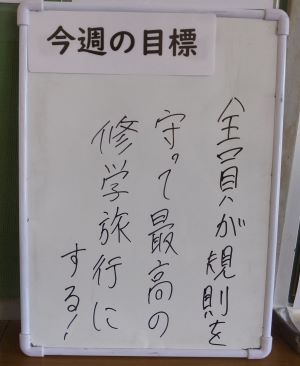 今週の目標
全員が規則を
守って最高の
修学旅行に
する!